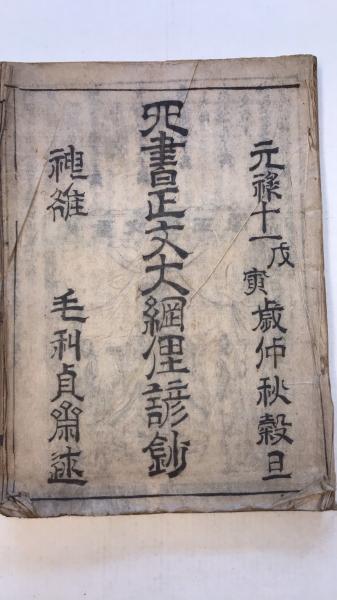 元祿十一戊寅歳仲秋穀旦
四書正文大綱俚諺鈔
神雒 毛利貞齋述